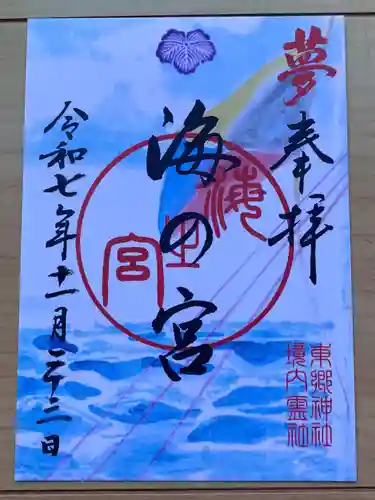 夢
奉拝
海の宮
海
生
宮
東郷神社
境内霊社
令和七年十一月二十二日